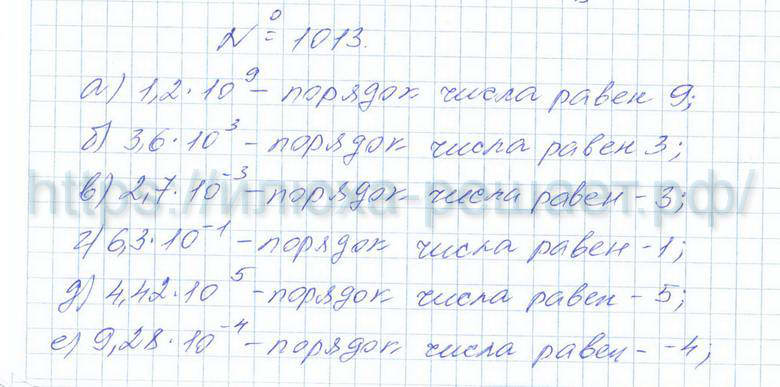 № 1013.
а) 1,2·10⁹ – порядок числа равен 9;
б) 3,6·10³ – порядок числа равен 3;
в) 2,7·10⁻³ – порядок числа равен -3;
г) 6,3·10⁻¹ – порядок числа равен -1;
д) 4,42·10⁵ – порядок числа равен - 5;
е) 9,28·10⁻⁴ – порядок числа равен - -4;
https://илюха-решает.рф/